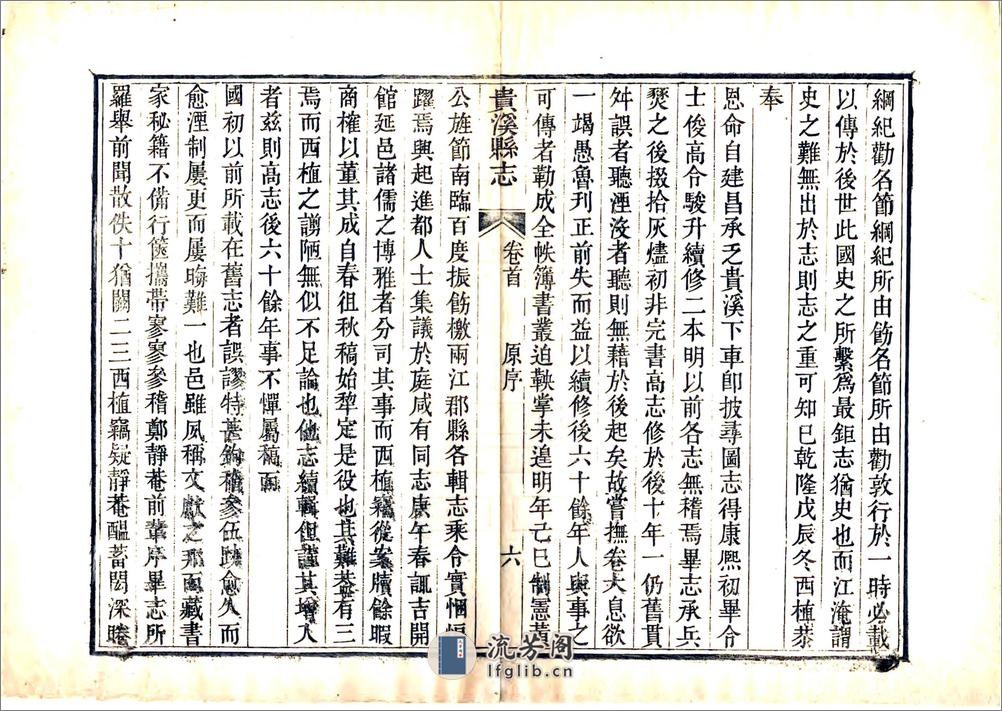 綱紀勸名節綱紀所由飭名節所由勸敦行於一時必載
以傳於後世此國史之所繫爲最鉅志猶史也而江淹謂
史之難無出於志則志之重可知已乾隆戊辰冬西植恭
奉
恩命自建昌承乏貴溪下車卽披尋圖志得康熙初畢令
士俊高令駿升續修二本明以前各志無稽焉畢志承兵
燹之後掇拾灰燼初非完書高志修於後十年一仍舊貫
舛誤者聽湮沒者聽則無藉於後起矣故嘗撫卷太息欲
一竭愚魯刋正前失而益以續修後六十餘年人與事之
可傳者勒成全帙簿書叢迫鞅掌未遑明年己巳制憲黃
貴溪縣志
卷首
原序
六
公旌節南臨百度振飭檄兩江郡縣各輯志乘令實悃愊
躍焉興起進都人士集議於庭咸有同志庚午春諏吉開
館延邑諸儒之博雅者分司其事而西植竊從案牘餘暇
商榷以董其成自春徂秋稿始犂定是役也其難葢有三
焉而西植之謭陋無似不足論也他志續輯但謹其增入
者兹則高志後六十餘年事不憚屬稿而
國初以前所載在舊志者誤謬特甚鉤稽參伍跡愈久而
愈湮制屢更而屢聮難一也邑雖夙稱文獻之邦而藏書
家秘籍不備行篋攜帶寥寥參稽鄭靜菴前輩序畢志所
羅舉前聞散佚十猶闕二三西植竊疑靜菴醞蓄閎深
流芳阁
lfglib.cn